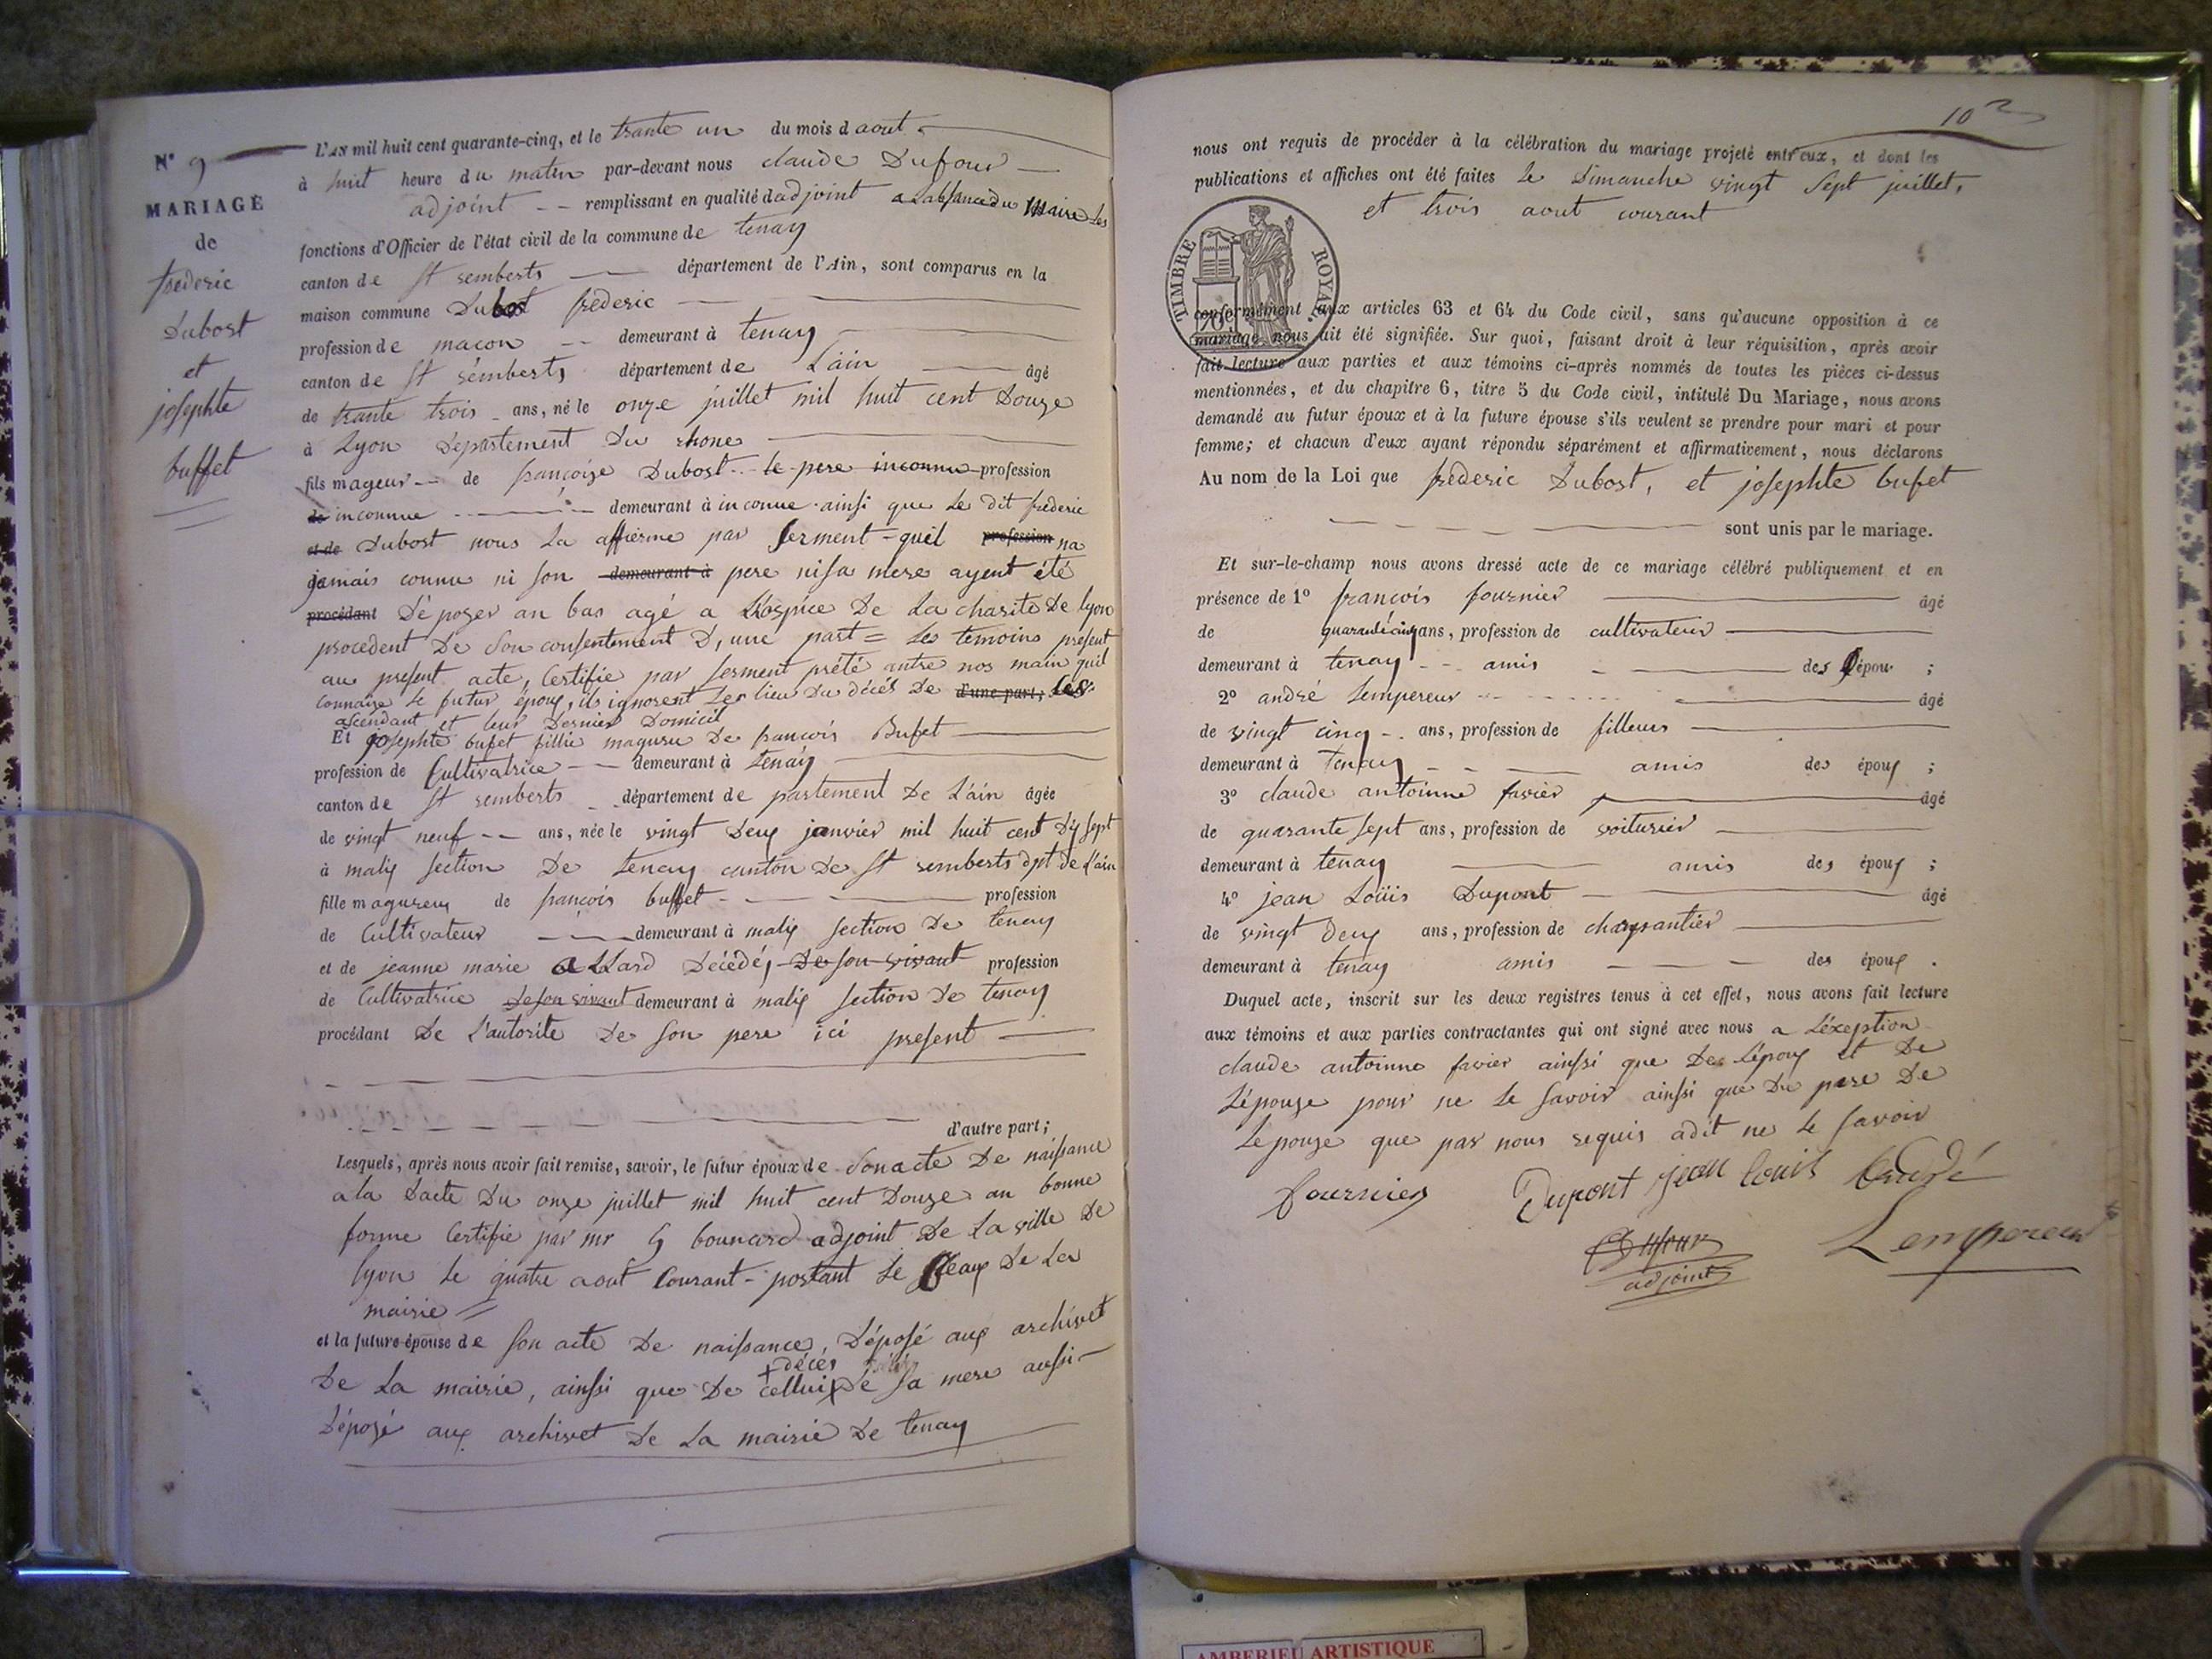 N° 9
MARIAGE
de
frederic
Dubost
et
josephte
buffet
L'AN mil huit cent quarante-cinq, et le trante un du mois d aout
à huit heure du matin par-devant nous claude Dufour
adjoint remplissant en qualité dadjoint a Labsance du Maire Les
fonctions d'Officier de l'état civil de la commune de tenay
canton de St remberts département de l'Ain, sont comparus en la
maison commune Dubost frederic
profession de macon demeurant à tenay
canton de St remberts département de L'ain âgé
de trante trois ans, né le onze juillet mil huit cent Douze
à Lyon Departement Du rhone
fils mageur de françoise Dubost le pere inconnu profession
de inconnue demeurant à inconue ainsi que Le dit frederic
et de Dubost nous La affierme par serment quil profession na
jamais connu ni son demeurant à pere ni sa mere ayent été
procédant Déposer an bas agé a L'hospice De La charite De lyon
procedent De Son consentement D, une part = Les temoins present
au present acte, Certifie par serment prété antre nos main quil
connaise Le futur époux, ils ignorent Les lieu Du décés De d'une part; Les
ascendant et leur Dernier Domicil
Et josephte bufet fillie magure De francois Bufet
profession de Cultivatrice demeurant à Tenay
canton de St remberts département de partement De L'ain âgée
de vingt neuf ans, née le vingt Deux janvier mil huit cent Dix sept
à malix section De Tenay canton De St remberts dpt de L'ain
fille magureu de françois buffet profession
de Cultivateur demeurant à malix section De tenay
et de jeanne marie aLLard Décédés De son vivant profession
de Cultivatrice De son vivant demeurant à malix section De tenay
procédant De L'autorite De son pere ici present
d'autre part;
Lesquels, après nous avoir fait remise, savoir, le futur époux de Son acte De naissance
a la Dacte Du onze juillet mil huit cent Douze an bonne
forme Certifie par mr adjoint De La ville De
lyon Le quatre août Courant - portant Le Seaux De La
mairie
et la future épouse de son acte De naissance, Déposé aux archivet
De La mairie, ainssi que De cellui x De Sa mere aussi
+ décès
Déposé aux archivet De La mairie De tenay
10
nous ont requis de procéder à la célébration du mariage projeté entr'eux, et dont les
publications et affiches ont été faites Le Dimanche vingt Sept juillet,
et trois aout courant
TIMBRE ROYAL
70
conformément aux articles 63 et 64 du Code civil, sans qu'aucune opposition à ce
mariage nous ait été signifiée. Sur quoi, faisant droit à leur réquisition, après avoir
fait lecture aux parties et aux témoins ci-après nommés de toutes les pièces ci-dessus
mentionnées, et du chapitre 6, titre 5 du Code civil, intitulé Du Mariage, nous avons
demandé au futur époux et à la future épouse s'ils veulent se prendre pour mari et pour
femme; et chacun d'eux ayant répondu séparément et affirmativement, nous déclarons
Au nom de la Loi que frederic Dubost, et josephte bufet
sont unis par le mariage.
Et sur-le-champ nous avons dressé acte de ce mariage célébré publiquement et en
présence de 1° francois fournier âgé
de quarante cinq ans, profession de cultivateur
demeurant à tenay amis des épou ;
2° andré Lempereur âgé
de vingt cinq ans, profession de filleur
demeurant à Tenay amis des époux ;
3° claude antoinne favier âgé
de quarante sept ans, profession de voiturier
demeurant à tenay amis des époux ;
4° jean Loüis Dupont âgé
de vingt deux ans, profession de charpantier
demeurant à tenay amis des époux .
Duquel acte, inscrit sur les deux registres tenus à cet effet, nous avons fait lecture
aux témoins et aux parties contractantes qui ont signé avec nous a L'éxeption
claude antoinne favier ainssi que De L'époux et De
L'épouze pour ne Le savoir ainssi que Du pere De
Lepouze que par nous requis a dit ne Le savoir
fournier Dupont jean louis André
Dufour Lempereur
adjoint
AMBERIEU ARTISTIQUE